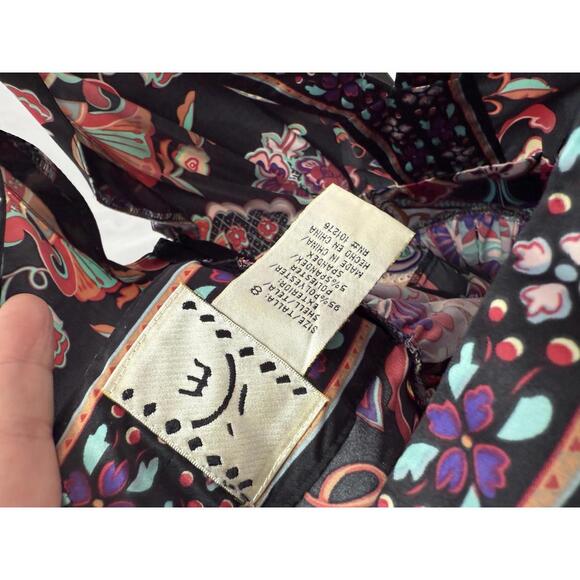 SIZE/TALLA: 8
SHELL/TELA
EXTERIOR:
95% POLYESTER/
POLIESTER
5% SPANDEX/
SPANDEX
MADE IN CHINA/
HECHO EN CHINA
RN# 101276